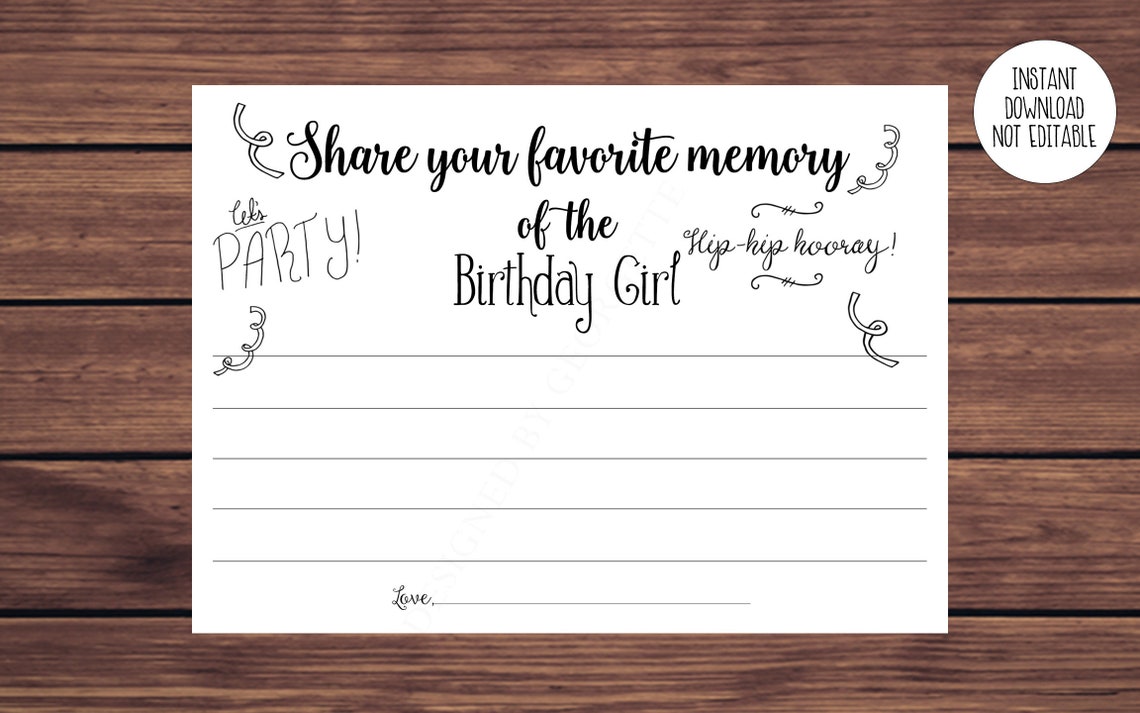 INSTANT
DOWNLOAD
NOT EDITABLE
Share your favorite memory
of the
Birthday Girl
Let's
PARTY!
Hip-hip hooray!
Love,
DESIGNED BY GEORGETTE